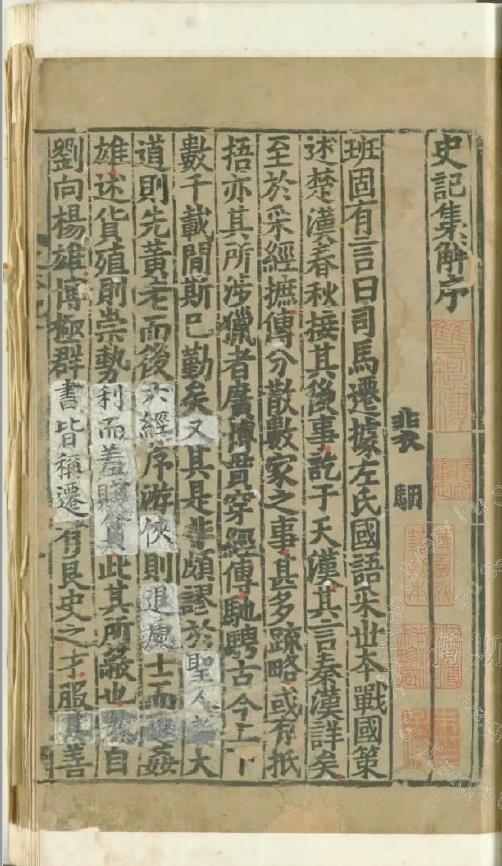 史記集解序
裴駰
班固有言曰司馬遷據左氏國語采世本戰國策
述楚漢春秋接其後事訖于天漢其言秦漢詳矣
至於采經摭傳分散數家之事甚多疏略或有抵
捂亦其所涉獵者廣博貫穿經傳馳騁古今上下
數千載間斯已勤矣又其是非頗謬於聖人論大
道則先黃老而後六經序游俠則退處士而進姦
雄述貨殖則崇勢利而羞賤貧此其所蔽也然自
劉向楊雄博極群書皆稱遷有良史之才服其善